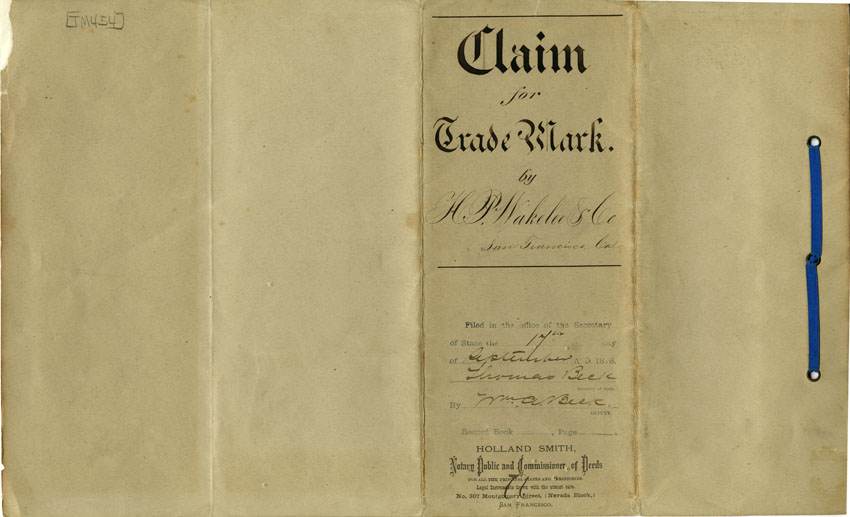 [TM454]
Claim
for
Trade Mark.
by
H. P. Wakelee & Co
San Francisco, Cal
Filed in the office of the Secretary
of State the 17th day
of September A. D. 1878.
Thomas Beck
Secretary of State.
By Wm. A. Beck.
DEPUTY.
Record Book , Page
HOLLAND SMITH,
Notary Public and Commissioner of Deeds
FOR ALL THE PRINCIPAL STATES AND TERRITORIES.
Legal Instruments drawn with the utmost care.
No. 307 Montgomery Street, (Nevada Block,)
SAN FRANCISCO.